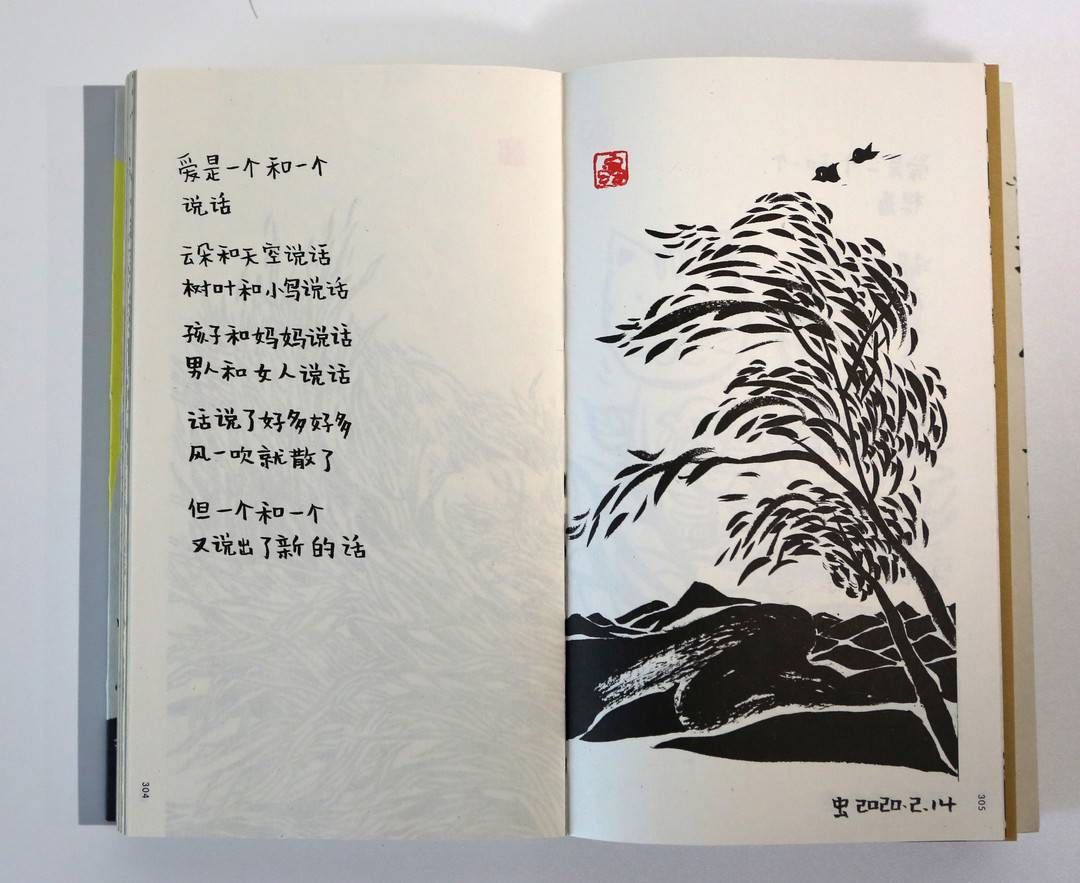 爱是一个和一个
说话
云朵和天空说话
树叶和小鸟说话
孩子和妈妈说话
男人和女人说话
话说了好多好多
风一吹就散了
但一个和一个
又说出了新的话
304
虫2020.2.14
305